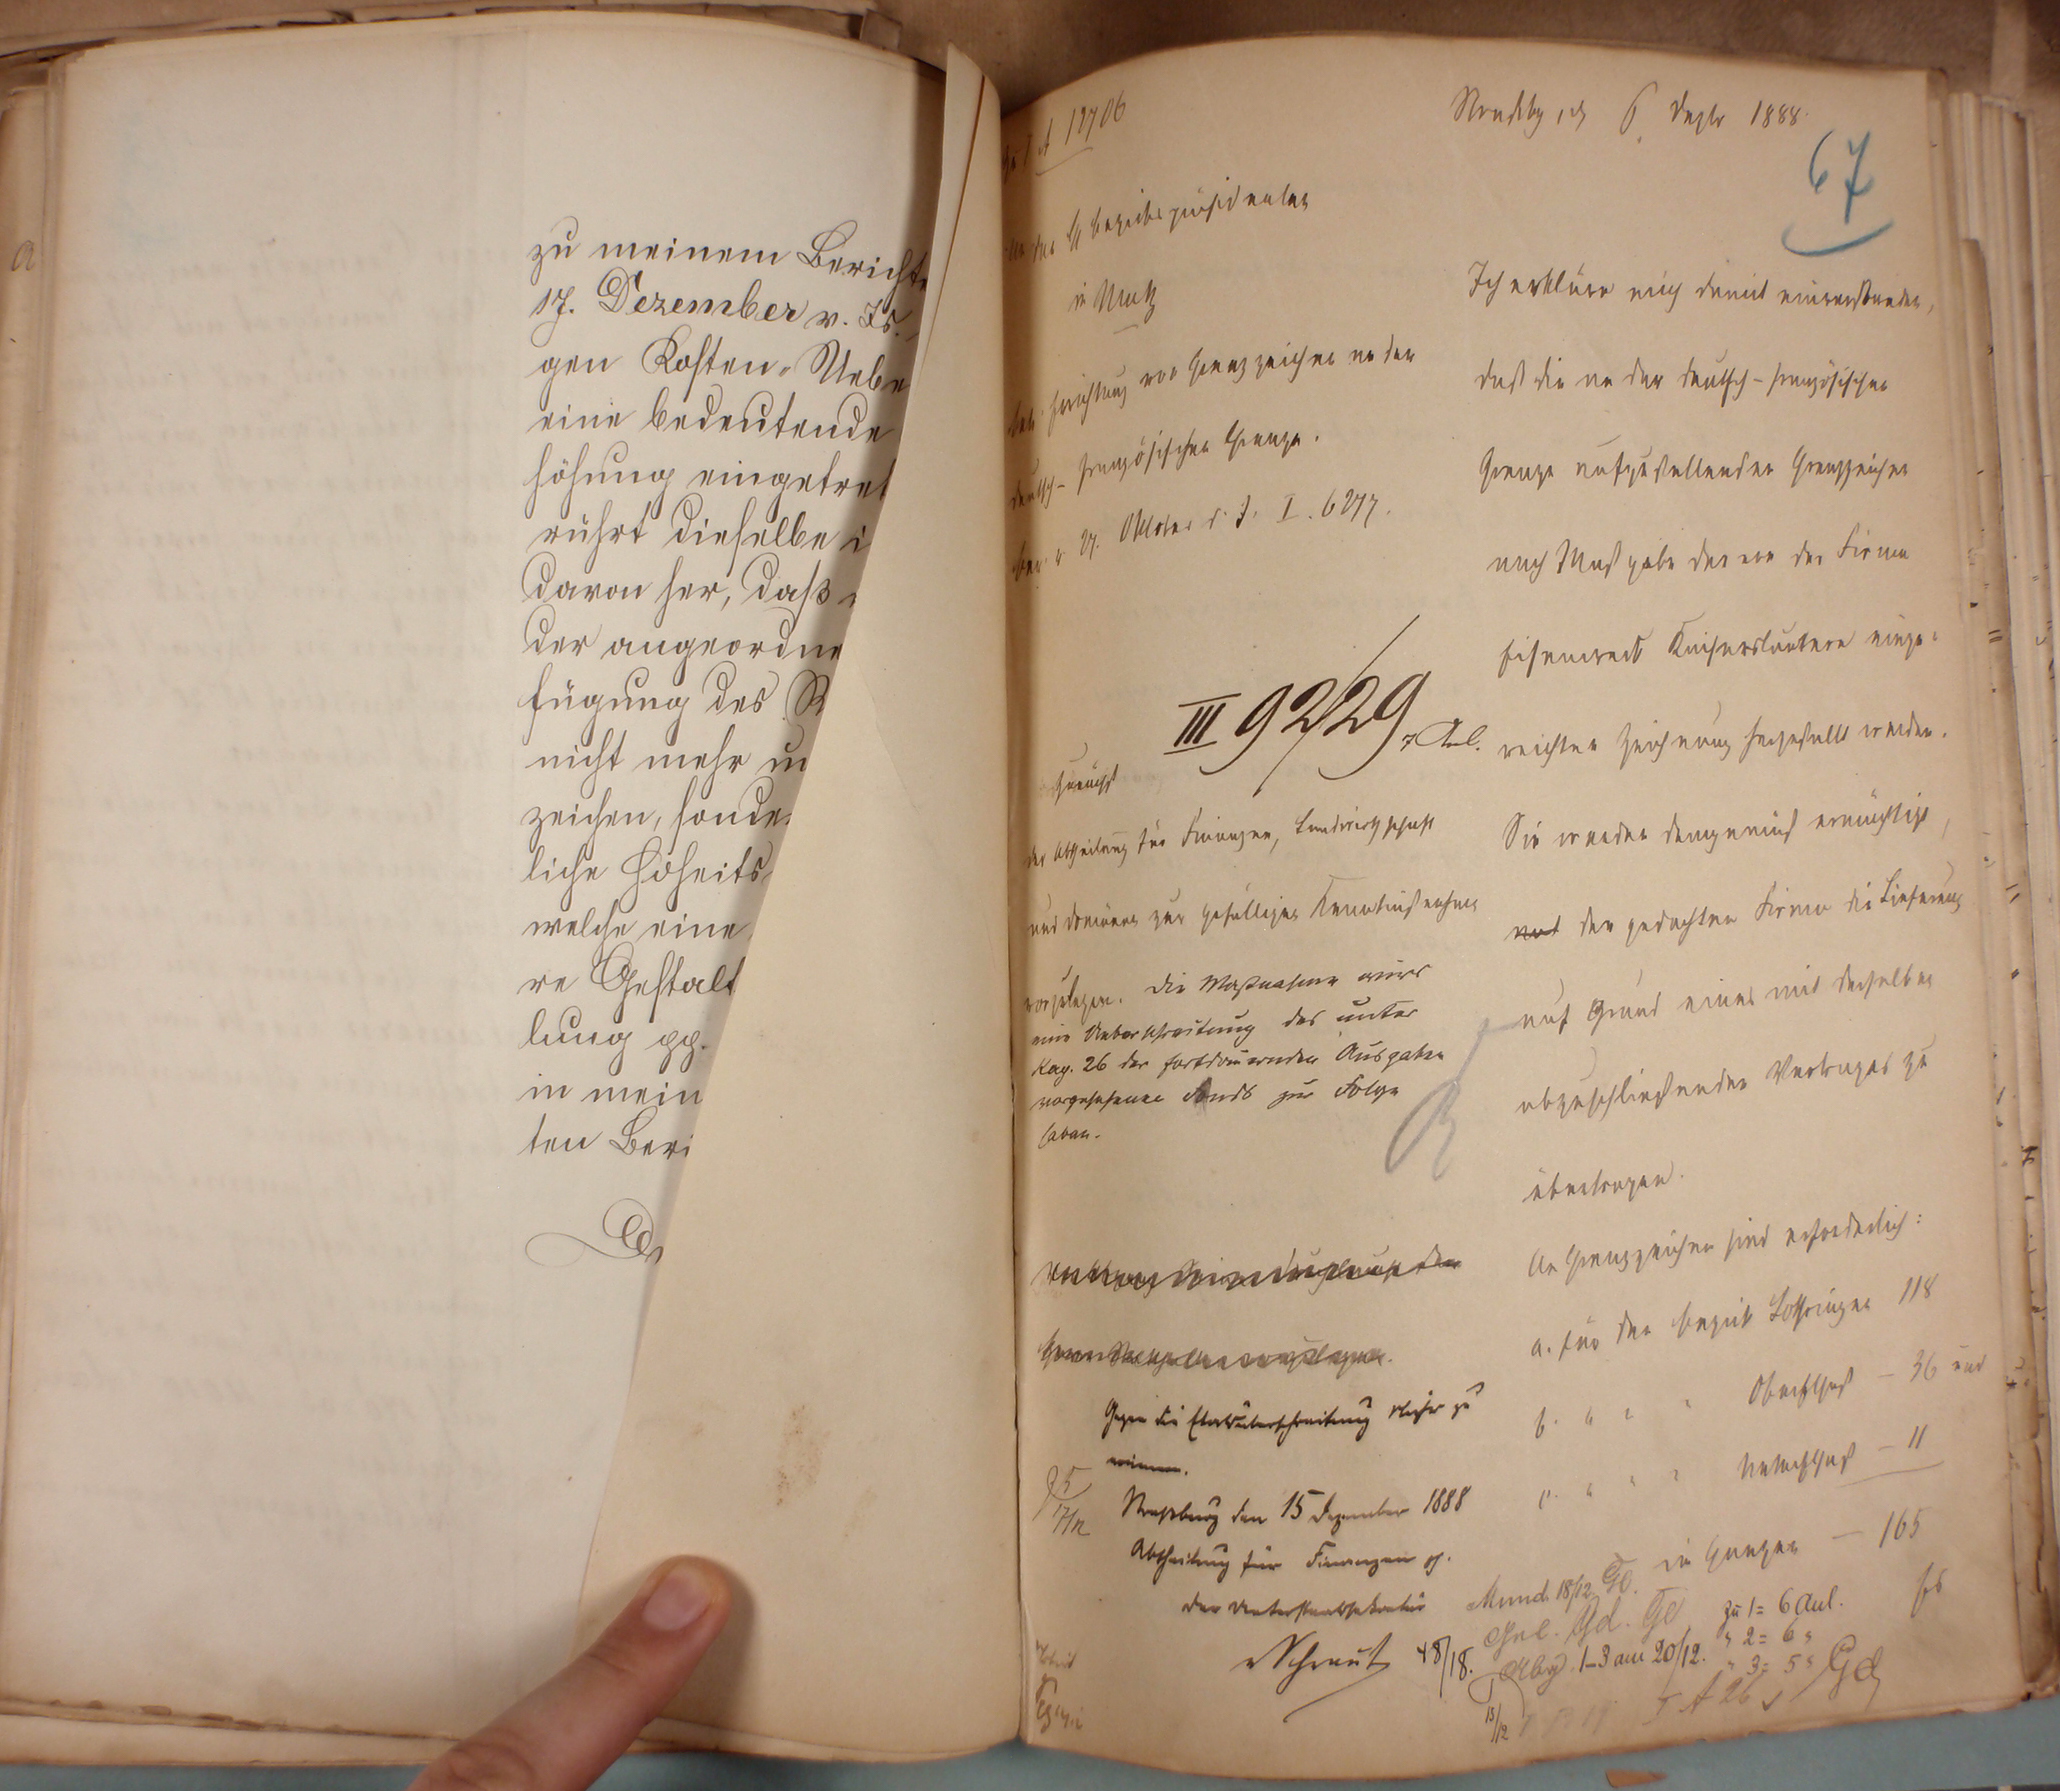 zu meinem Berichte
17. Dezember v. Js.
gen Kosten-Uebe
eine bedeutende
höhung eingetret
rührt dieselbe i
davon her, daß
der angeordne
fügung des R
nicht mehr un
zeichen, sonde
liche Hoheits
welche eine
re Gestalt
lung pp.
in mein
ten Beri
I A 12706
Bezirkspräsidenten
in Metz
Errichtung von Grenzzeichen an der
deutsch-französischen Grenze.
Oktober d. J. I. 6277.
III 9229
7 Anl.
der Abtheilung für Finanzen, Landwirthschaft
und Domänen zur gefälligen Kenntnißnahme
vorzulegen. Die Maßnahme wird
eine Ueberschreitung des unter
Kap. 26 der fortdauernden Ausgaben
vorgesehenen Fonds zur Folge
haben.
Gegen die Etatsüberschreitung nichts zu
erinnern.
Straßburg den 15 Dezember 1888
Abtheilung für Finanzen pp.
Der Unterstaatssekretär
Schraut
Straßbg, d. 6 Dezbr 1888.
67
Ich erkläre mich damit einverstanden,
daß die an der deutsch-französischen
Grenze aufzustellenden Grenzzeichen
nach Maßgabe der von der Firma
Eisenwerk Kaiserslautern einge-
reichten Zeichnung hergestellt werden.
Sie werden demgemäß ermächtigt,
der gedachten Firma die Lieferung
auf Grund eines mit derselben
abzuschließenden Vertrages zu
übertragen.
An Grenzzeichen sind erforderlich:
a. für den Bezirk Lothringen 118
b. " " " Oberelsaß – 36 und
c. " " " Unterelsaß – 11
im Ganzen – 165
Mund. 18/12.
zu 1 = 6 Anl.
" 2 = 6 "
1-3 am 20/12. " 3 = 5 "
13/12
I A 26